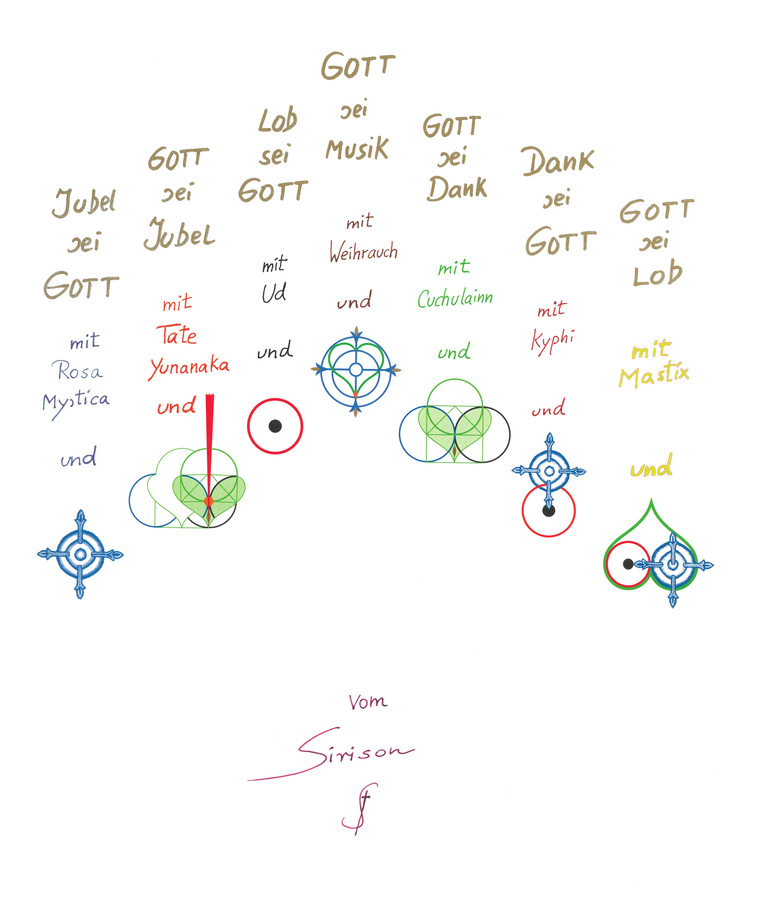 Jubel
sei
GOTT
mit
Rosa
Mystica
und
GOTT
sei
Jubel
mit
Tate
Yunanaka
und
Lob
sei
GOTT
mit
Ud
und
GOTT
sei
Musik
mit
Weihrauch
und
GOTT
sei
Dank
mit
Cuchulainn
und
Dank
sei
GOTT
mit
Kyphi
und
GOTT
sei
Lob
mit
Mastix
und
Vom
Sirison